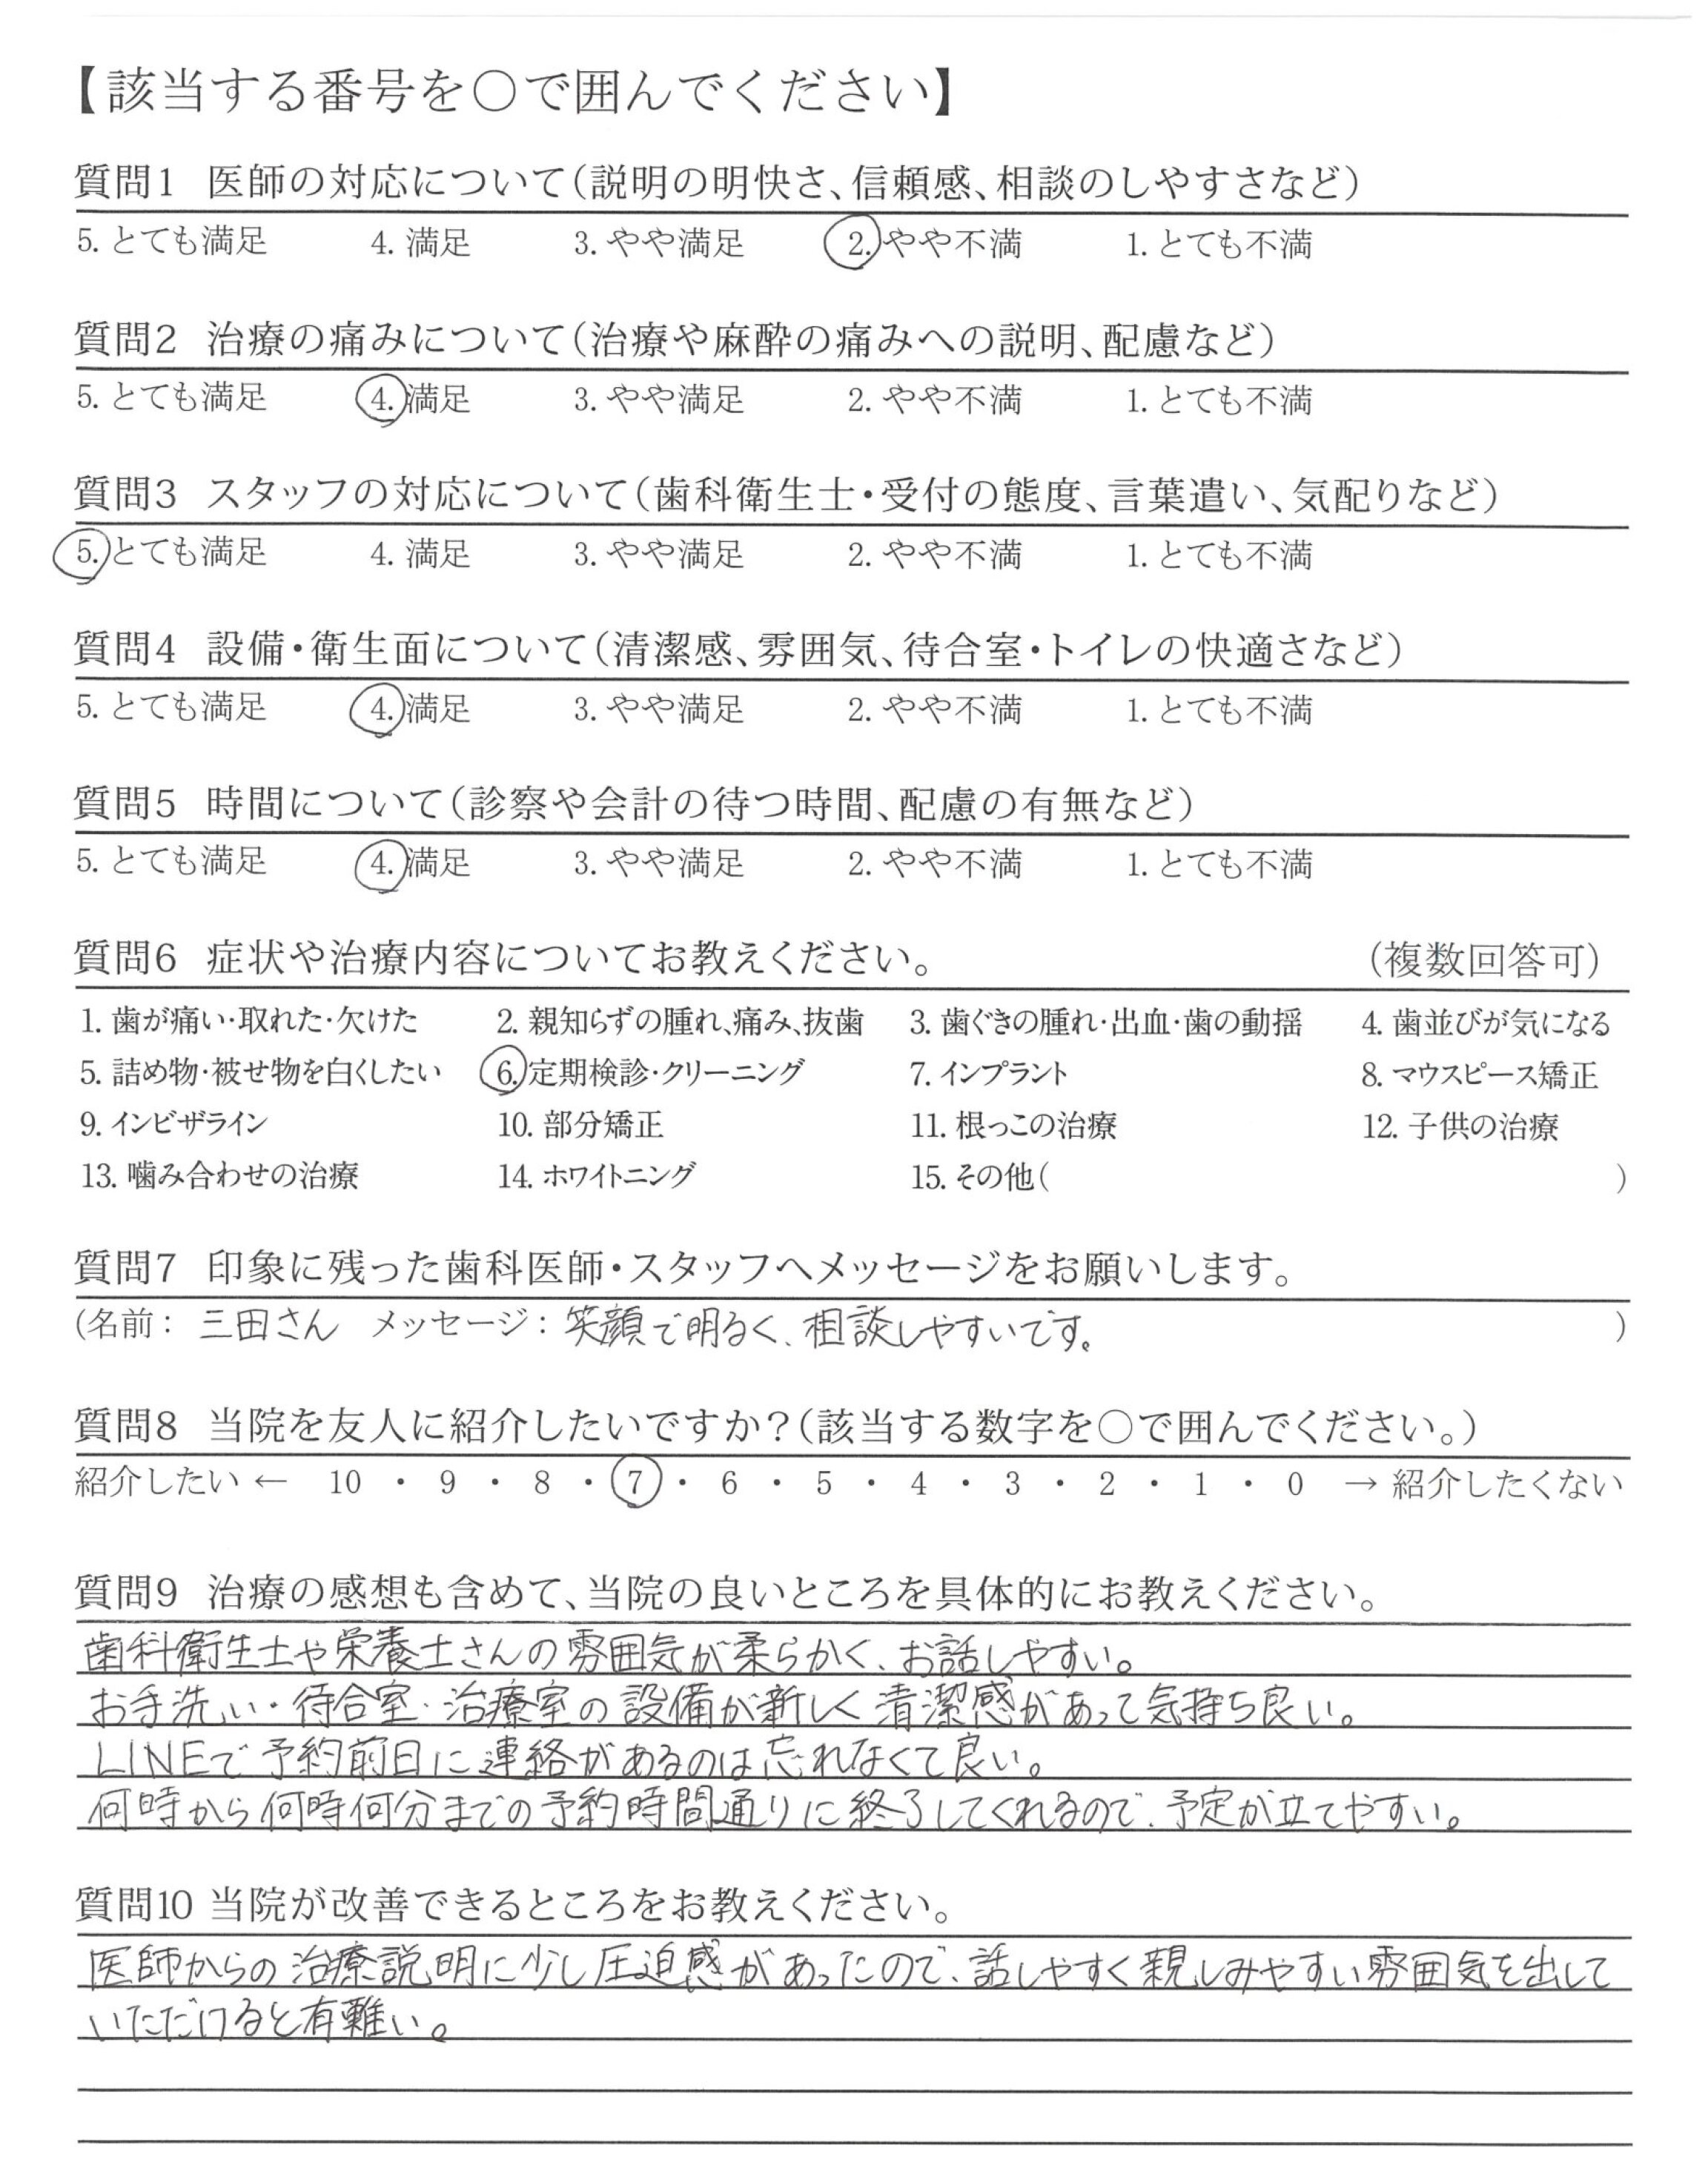 【該当する番号を○で囲んでください】
質問1 医師の対応について(説明の明快さ、信頼感、相談のしやすさなど)
5. とても満足 4. 満足 3. やや満足 2. やや不満 1. とても不満
質問2 治療の痛みについて(治療や麻酔の痛みへの説明、配慮など)
5. とても満足 4. 満足 3. やや満足 2. やや不満 1. とても不満
質問3 スタッフの対応について(歯科衛生士・受付の態度、言葉遣い、気配りなど)
5. とても満足 4. 満足 3. やや満足 2. やや不満 1. とても不満
質問4 設備・衛生面について(清潔感、雰囲気、待合室・トイレの快適さなど)
5. とても満足 4. 満足 3. やや満足 2. やや不満 1. とても不満
質問5 時間について(診察や会計の待つ時間、配慮の有無など)
5. とても満足 4. 満足 3. やや満足 2. やや不満 1. とても不満
質問6 症状や治療内容についてお教えください。 (複数回答可)
1. 歯が痛い・取れた・欠けた 2. 親知らずの腫れ、痛み、抜歯 3. 歯ぐきの腫れ・出血・歯の動揺 4. 歯並びが気になる
5. 詰め物・被せ物を白くしたい 6. 定期検診・クリーニング 7. インプラント 8. マウスピース矯正
9. インビザライン 10. 部分矯正 11. 根っこの治療 12. 子供の治療
13. 噛み合わせの治療 14. ホワイトニング 15. その他( )
質問7 印象に残った歯科医師・スタッフへメッセージをお願いします。
(名前: 三田さん メッセージ: 笑顔で明るく、相談しやすいです。 )
質問8 当院を友人に紹介したいですか?(該当する数字を○で囲んでください。)
紹介したい ← 10 ・ 9 ・ 8 ・ 7 ・ 6 ・ 5 ・ 4 ・ 3 ・ 2 ・ 1 ・ 0 → 紹介したくない
質問9 治療の感想も含めて、当院の良いところを具体的にお教えください。
歯科衛生士や栄養士さんの雰囲気が柔らかく、お話しやすい。
お手洗い・待合室・治療室の設備が新しく清潔感があって気持ち良い。
LINEで予約前日に連絡があるのは忘れなくて良い。
何時から何時何分までの予約時間通りに終了してくれるので、予定が立てやすい。
質問10 当院が改善できるところをお教えください。
医師からの治療説明に少し圧迫感があったので、話しやすく親しみやすい雰囲気を出して
いただけると有難い。